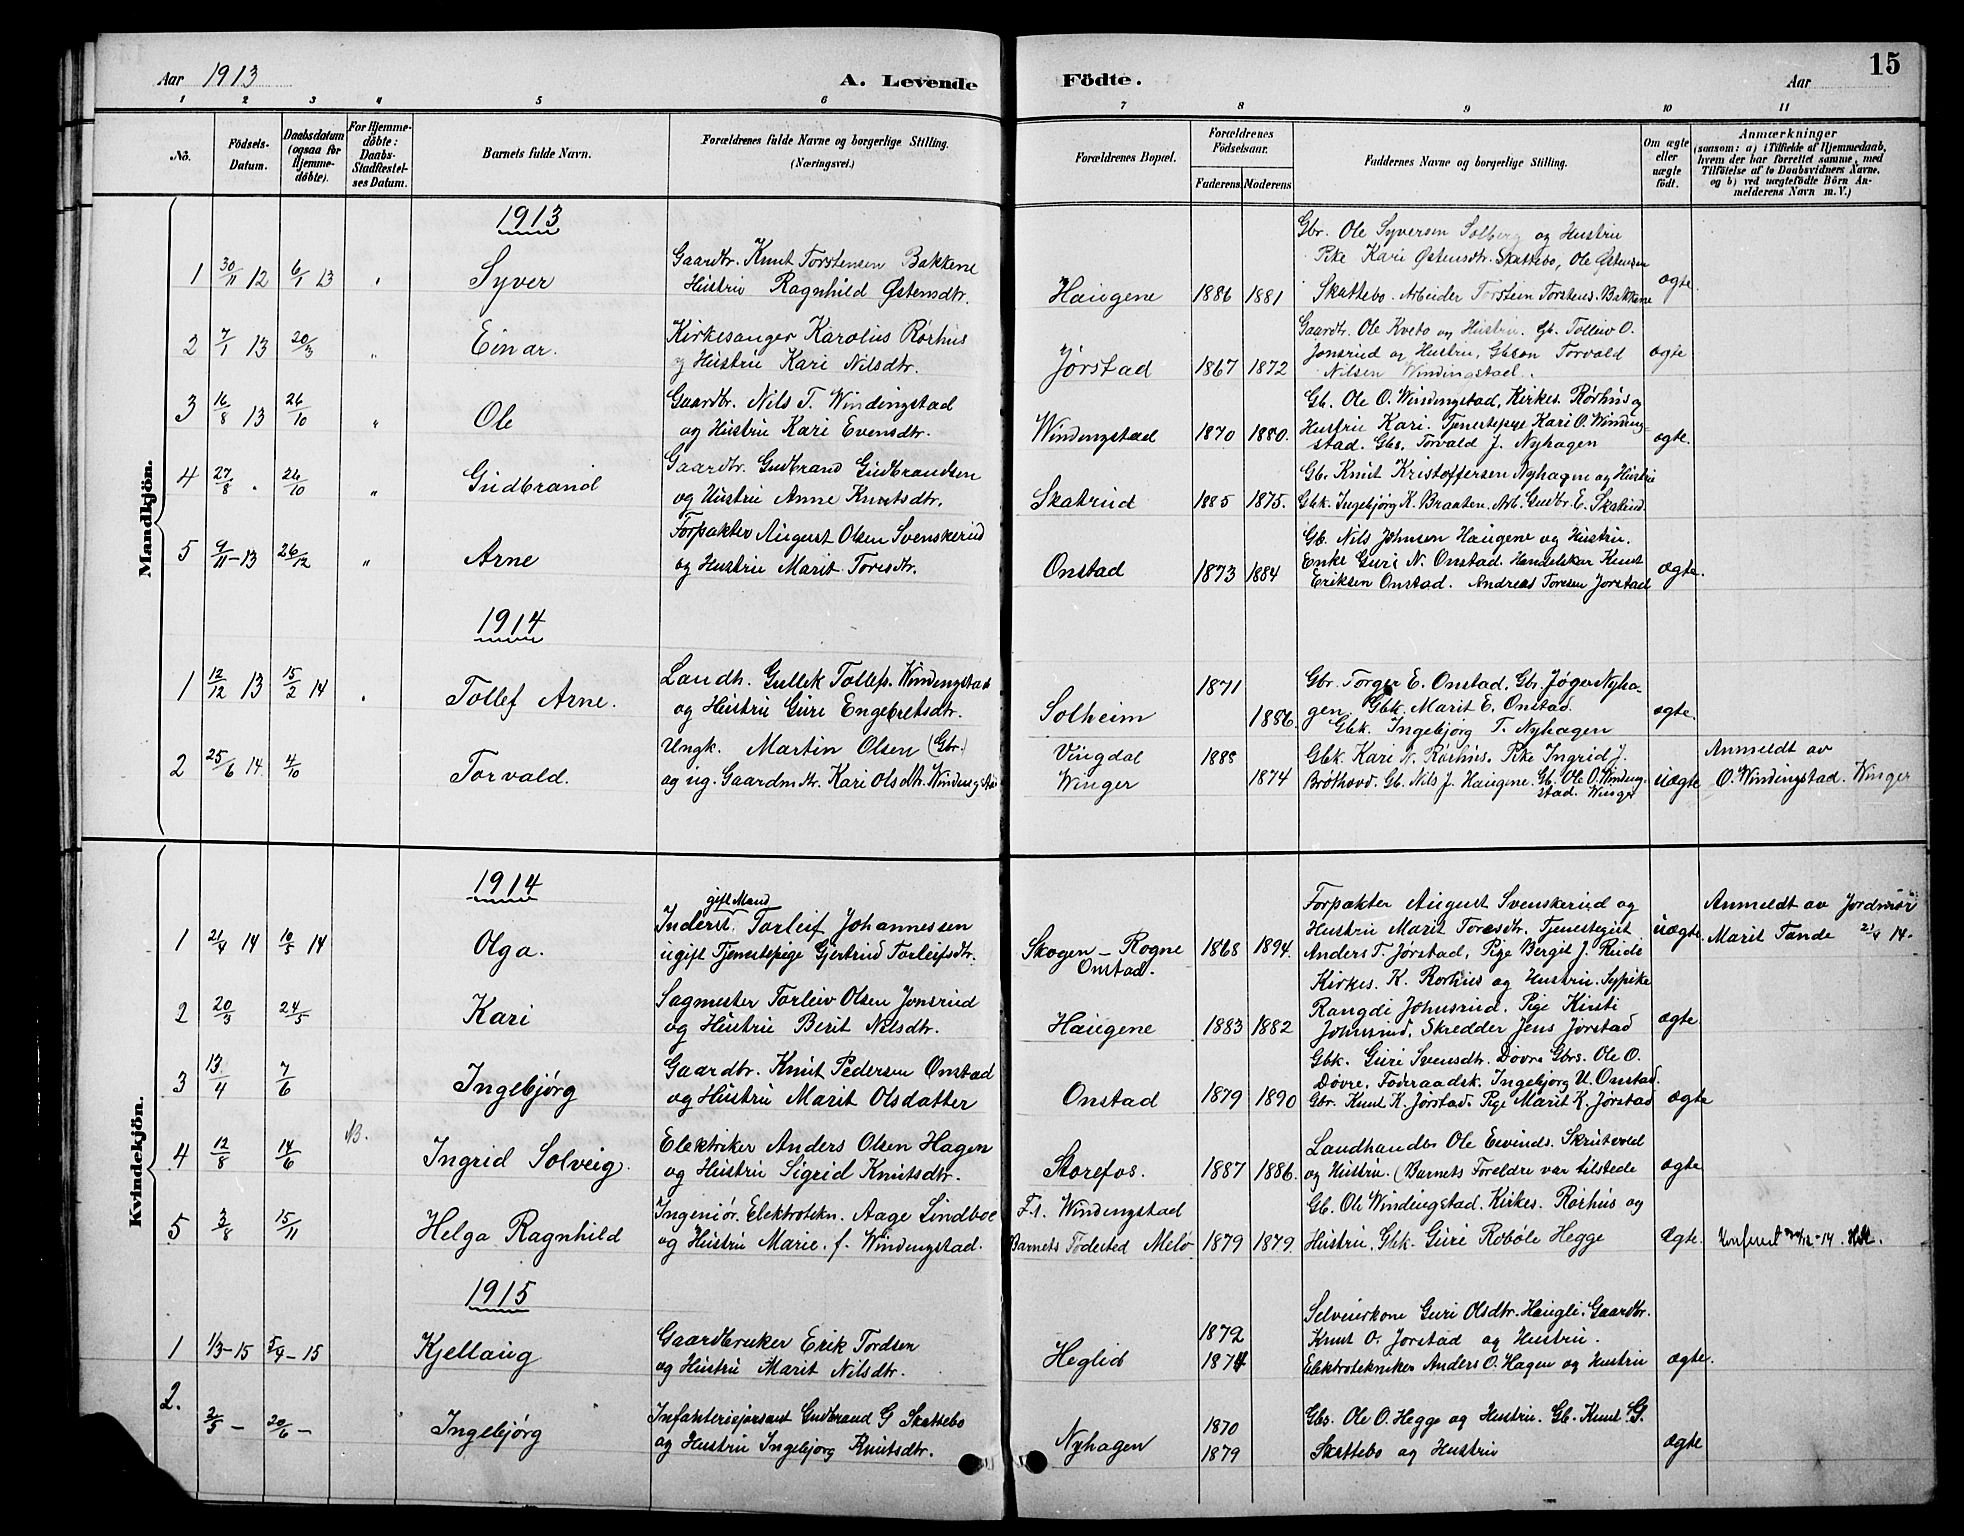 Aar 1913
A. Levende Födte.
Aar
15
1 2 3 4 5 6 7 8 9 10 11
No.
Födsels-Datum.
Daabsdatum (ogsaa for Hjemme-døbte).
For Hjemme-døbte: Daabs-Stadfestel-ses Datum.
Barnets fulde Navn.
Forældrenes fulde Navne og borgerlige Stilling. (Næringsvei.)
Forældrenes Bopæl.
Forældrenes Födselsaar.
Faderens Moderens
Faddernes Navne og borgerlige Stilling.
Om ægte eller uægte født.
Anmærkninger
(saasom: a) i Tilfælde af Hjemmedaab,
hvem der har forrettet samme, med
Tilföielse af to Daabsvidners Navne,
og b) ved uægtefödte Börn An-
melderens Navn m. V.)
Mandkjön.
1913
1 30/11 12 6/1 13 " Syver
Gaardbr. Knut Torstensen Bakkene
Hustru Ragnhild Østensdtr.
Haugene 1886 1881
Gbr. Ole Syversen Solberg og Hustru
Pike Kari Østensdtr. Skattebo, Ole Østensen
Skattebo. Arbeider Torstein Torstens. Bakkene
ægte
2 7/1 13 20/3 " Einar.
Kirkesanger Karolius Rørhus
og Hustru Kari Nilsdtr.
Jørstad 1867 1872
Gaardbr. Ole Kveto og Hustru. Gb. Tolleiv O.
Jonsrud og Hustru, Gbsøn Torvald
Nilsen Windingstad.
ægte
3 16/8 13 26/10 " Ole
Gaardbr. Nils T. Windingstad
og Hustru Kari Evensdtr.
Windingstad 1870 1880.
Gb. Ole O. Windingstad, Kirkes. Rørhus og
Hustru Kari. Tjenestepige Kari O. Winding-
stad. Gbs. Torvald J. Nyhagen
ægte.
4 27/8 " 26/10 " Gudbrand
Gaardbr. Gudbrand Gudbrandsen
og Hustru Anne Knutsdtr.
Skatrud 1885 1875.
Gb. Knut Kristoffersen Nyhagen og Hustru
Gbk. Ingebjørg K. Braaten. Arb. Gudbr. E. Skatrud.
5 9/11-13 26/12 " Arne
Forpakter August Olsen Svenskerud
og Hustru Marit Toresdtr.
Onstad 1873 1884
Gb. Nils Johnsen Haugene og Hustru.
Enke Guri N. Onstad. Handelskar Knut
Eriksen Onstad. Andreas Toresen Jørstad
ægte.
1914
1 12/12 13 15/2 14 " Tollef Arne.
Landh. Gullek Tollefs. Windingstad
og Hustru Guri Engebretsdtr.
Solheim 1871 1886
Gbr. Torger E. Onstad. Gbr. Jøger Nyha-
gen. Gbk. Marit E. Onstad
Gbk. Ingebjørg T. Nyhagen
ægte.
2 25/6 14 4/10 Torvald.
Ungk. Martin Olsen (Gbr.)
og ug. Gaardmdtr. Kari Olsdtr. Windingstad
Vingdal
Winger
1888 1874
Gbk. Kari N. Rørhus. Pike Ingrid J.
Bröthovd. Gb. Nils J. Haugene. Gb. Ole O. Winding-
stad. Winger
uægte
Anmeldt av
O. Windingstad. Winger
Kvindekjön.
1914
1 21/4 14 10/5 14 Olga.
gift Mand
Inderst. Torleif Johannessen
ugift Tjenestepige Gjertrud Torleifsdtr.
Skogen - Rogne
Onstad.
1868 1894.
Forpakter August Svenskerud og
Hustru Marit Toresdtr. Tjenestegut
Anders T. Jørstad, Pige Bergit J. Rude
uægte.
Anmeldt av Jordmor
Marit Tande 21/4 14.
2 20/3 24/5 Kari
Sagmester Torleiv Olsen Jonsrud
og Hustru Berit Nilsdtr.
Haugene 1883 1882
Kirkes. K. Rørhus og Hustru. Sypike
Rangdi Johnsrud. Pige Kirsti
Johnsrud. Skredder Jens Jørstad
ægte.
3 13/4 7/6 Ingebjørg
Gaardbr. Knut Pedersen Onstad
og Hustru Marit Olsdatter
Onstad 1879 1890
Gbk. Guri Svensdtr. Døvre Gbrs. Ole O.
Døvre, Føderaadsk. Ingebjørg U. Onstad.
Gbr. Knut K. Jørstad. Pige Marit K. Jørstad
ægte
4 12/8 14/6 NB. Ingrid Solveig.
Elektriker Anders Olsen Hagen
og Hustru Sigrid Knutsdtr.
Storefos. 1887 1886.
Landhandler Ole Eivinds. Skrutvold
og Hustru. (Barnets Foreldre var tilstede
ægte
5 3/8 15/11 Helga Ragnhild
Ingeniør. Elektrotekn. Aage Lindboe
og Hustru Marie. f. Windingstad.
F.t. Windingstad
Barnets Fødested Melø
1879 1879.
Gb. Ole Windingstad. Kirkes. Rørhus og
Hustru. Gbk. Guri Robøle Hegge
Ægte.
1915
1 1/3-15 5/4-15 Kjellaug
Gaardbruker Erik Tordsen
og Hustru Marit Nilsdtr.
Heglid 1872 1874
Selveierkone Guri Olsdtr. Haugli. Gaardbr.
Knut O. Jørstad og Hustru.
Elektrotekniker Anders O. Hagen og Hustru
ægte.
2. 2/5 - 20/6 - Ingebjørg
Infanterisersjant Gudbrand G. Skattebo
og Hustru Ingebjørg Knutsdtr.
Nyhagen 1870 1879
Gbs. Ole O. Hegge og Hustru. Gb. Knut G.
Skattebo og Hustru
ægte